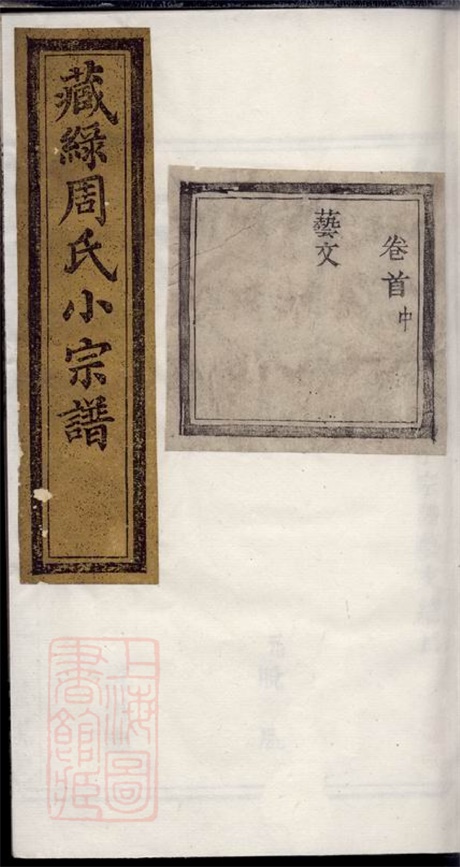 卷首中
藝文
藏綠周氏小宗譜
上海圖
書館藏